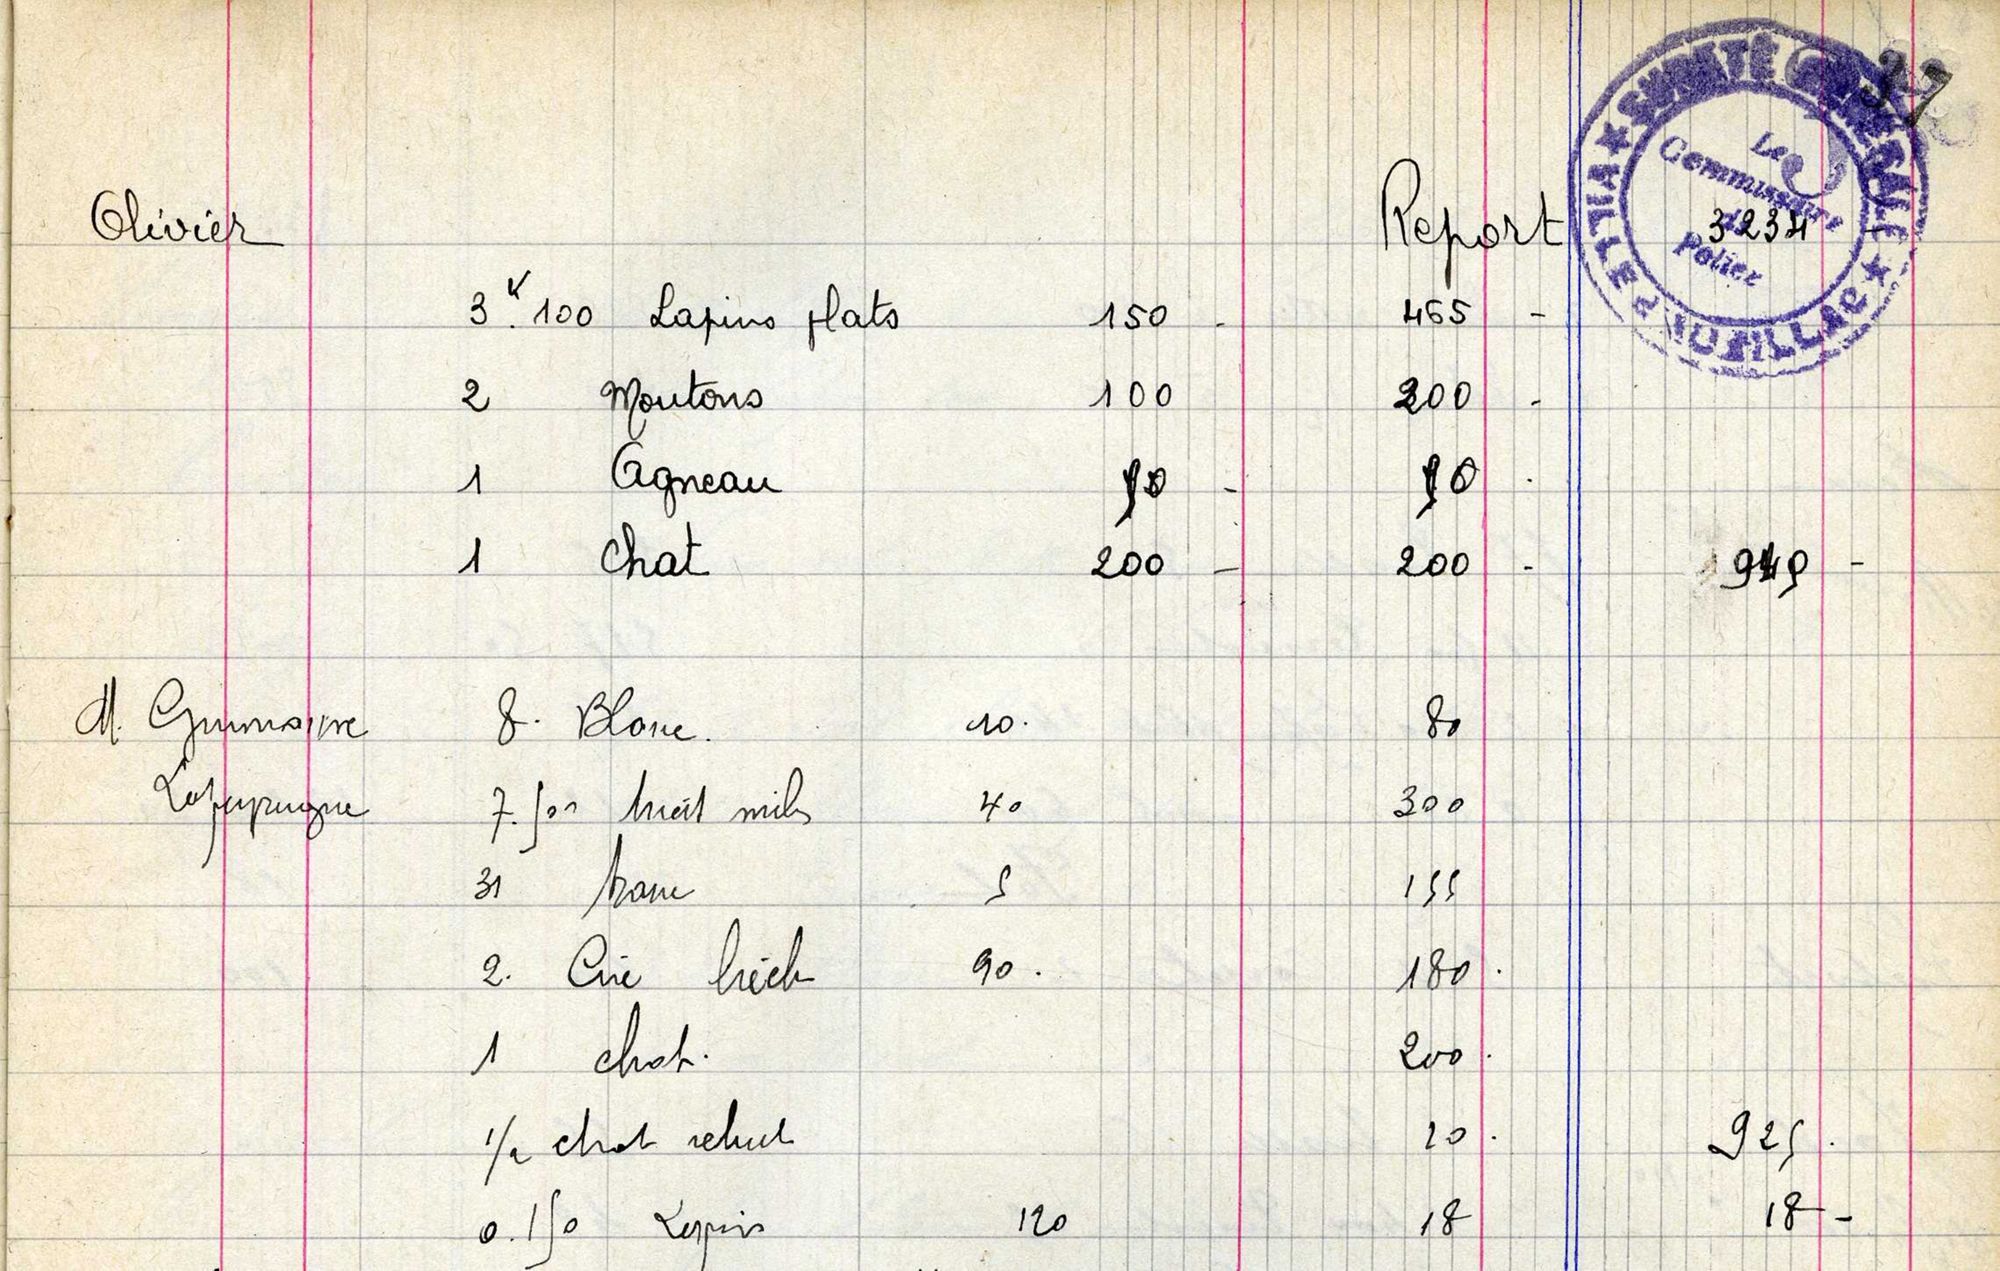 37
★ SURETÉ GÉNÉRALE ★ VILLE DE NEUVILLAC
Le Commissaire de Police
Olivier Report 3234 -
3.K 100 Lapins plats 150 - 465 -
2 Moutons 100 200 -
1 Agneau 90 - 90 -
1 Chat 200 - 200 - 945 -
M. 8. Blanc. 10. 80
7.500 40 300
31 5 155
2. 90. 180.
1 chat. 200.
1/2 chat rebut 10. 925.
0.150 Lapins 120 18 18 -